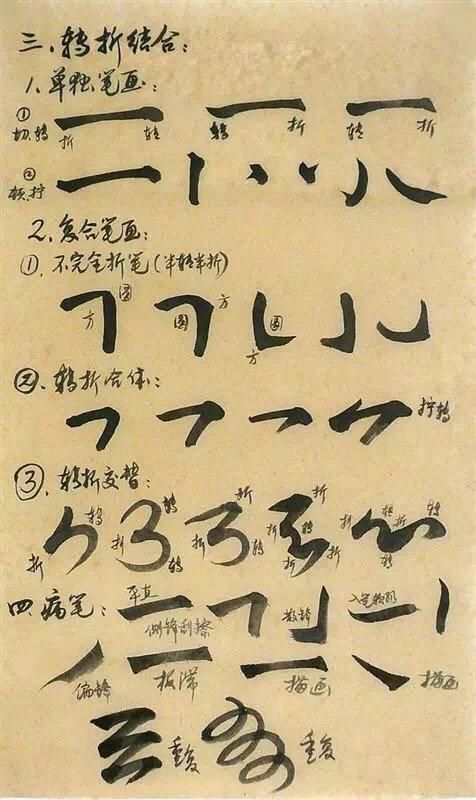 三、转折结合：
1.单独笔画：
①切.转
折 转 转 折 转 折
②顿.拧
2.复合笔画：
①.不完全折笔(半转半折)
方 圆 圆 方 圆 方
②.转折合体：
拧转
③.转折交替：
折 转 折 转 转 折 折 转 折 折 转 折 折 转 折 转 转
四.病笔：
平直 侧锋刮擦 散锋
偏锋 板滞 描画 描画
重复 重复